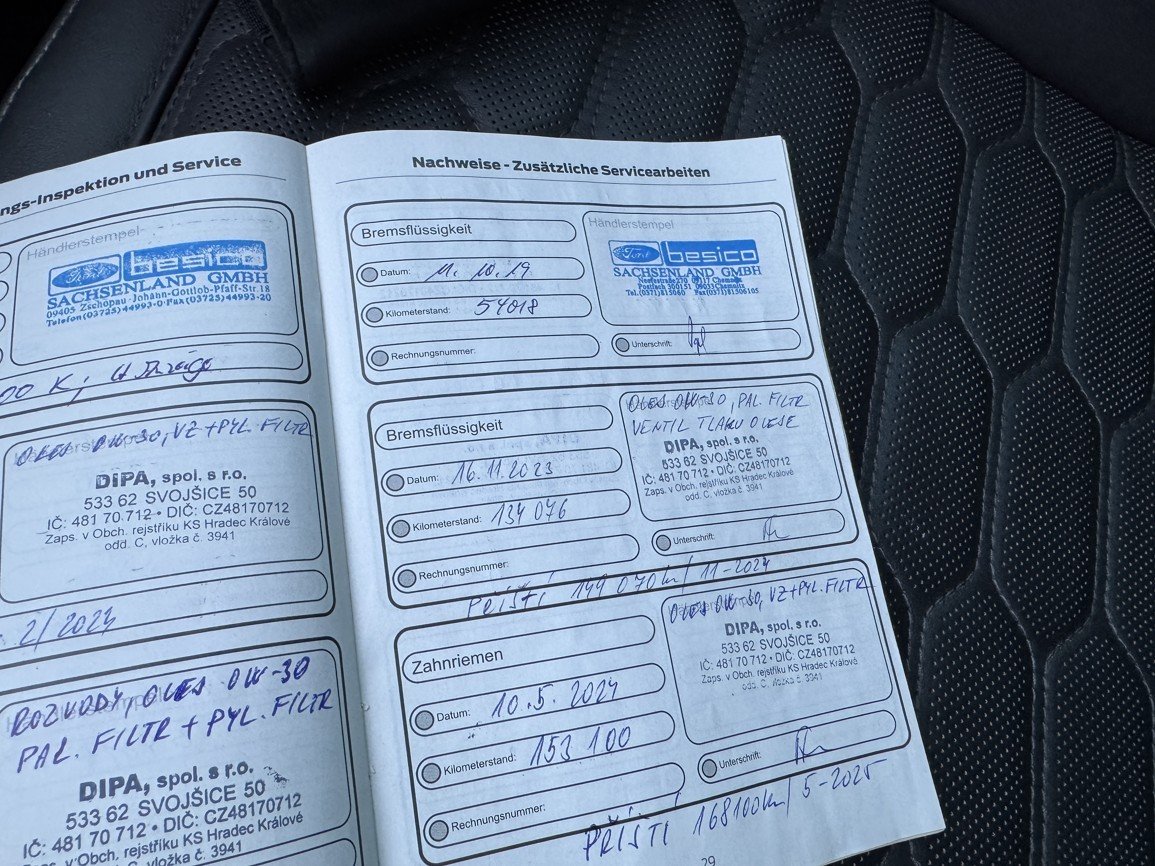 ngs-Inspektion und Service
Händlerstempel
Ford besico
SACHSENLAND GMBH
09405 Zschopau · Johann-Gottlob-Pfaff-Str. 18
Telefon (03725) 44993-0 · Fax (03725) 44993-20
00 K;
OLEJ 0W-30, VZ + PYL. FILTR
DIPA, spol. s r.o.
533 62 SVOJŠICE 50
IČ: 481 70 712 • DIČ: CZ48170712
Zaps. v Obch. rejstříku KS Hradec Králové
odd. C, vložka č. 3941
2/2024
ROZVODY, OLEJ 0W-30
PAL. FILTR + PYL. FILTR
DIPA, spol. s r.o.
533 62 SVOJŠICE 50
IČ: 481 70 712 • DIČ: CZ48170712
Zaps. v Obch. rejstříku KS Hradec Králové
odd. C, vložka č. 3941
Nachweise - Zusätzliche Servicearbeiten
Bremsflüssigkeit
Datum: 11. 10. 19
Kilometerstand: 54018
Rechnungsnummer:
Händlerstempel
Ford besico
SACHSENLAND GMBH
Neefestraße 09117 Chemnitz
Postfach 300151 09033 Chemnitz
Tel. (0371) 815060 Fax (0371) 81506105
Unterschrift:
Bremsflüssigkeit
Datum: 16. 11. 2023
Kilometerstand: 134 076
Rechnungsnummer:
OLEJ 0W-30, PAL. FILTR
VENTIL TLAKU OLEJE
DIPA, spol. s r.o.
533 62 SVOJŠICE 50
IČ: 481 70 712 • DIČ: CZ48170712
Zaps. v Obch. rejstříku KS Hradec Králové
odd. C, vložka č. 3941
Unterschrift:
PŘÍŠTÍ 149 070 km / 11-2024
Zahnriemen
Datum: 10. 5. 2024
Kilometerstand: 153 100
Rechnungsnummer:
OLEJ 0W-30, VZ + PYL. FILTR
DIPA, spol. s r.o.
533 62 SVOJŠICE 50
IČ: 481 70 712 • DIČ: CZ48170712
Zaps. v Obch. rejstříku KS Hradec Králové
odd. C, vložka č. 3941
Unterschrift:
PŘÍŠTÍ 168100 km / 5-2025
29